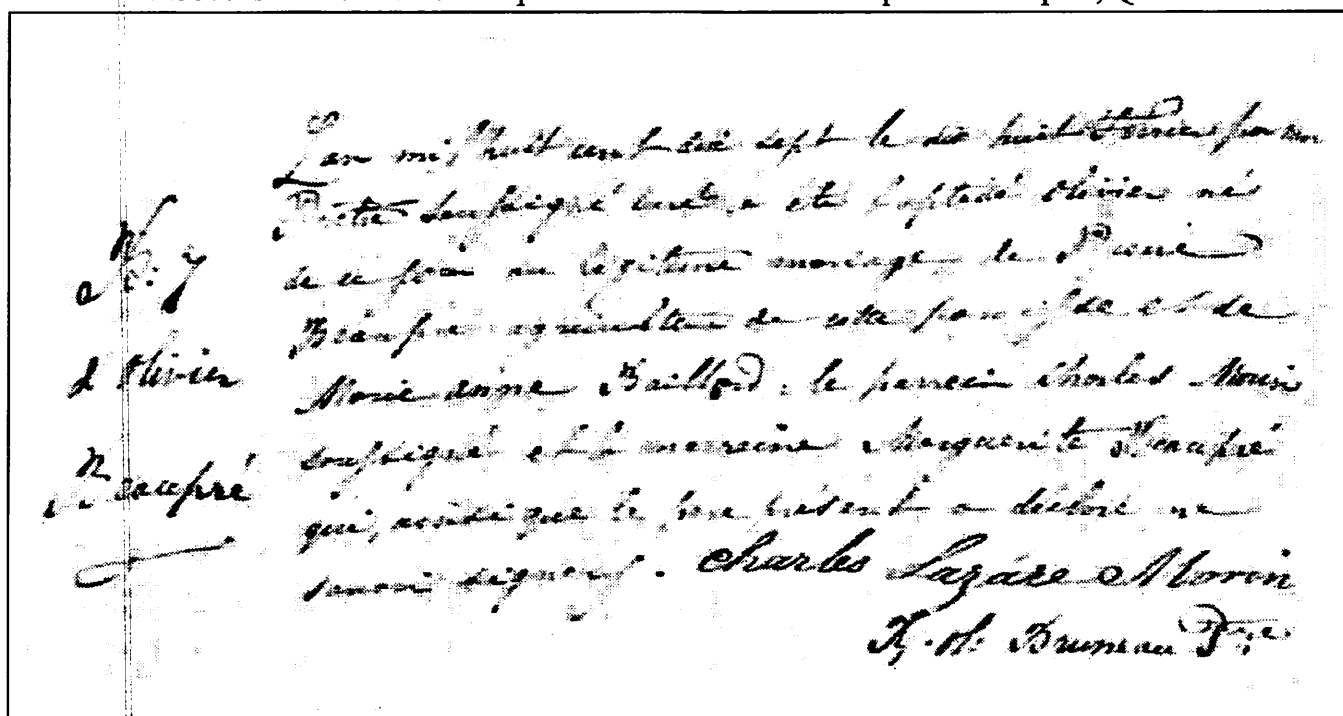 B. 7
d'Olivier
Beaupré
L'an mil huit cent dix sept le dix huit par nous
Prêtre soussigné curé, a été baptisé Olivier né
de ce jour en légitime mariage de Pierre
Beaupré agriculteur de cette paroisse et de
Marie anne Baillard. le parrein Charles Morin
soussigné et la marreine Marguerite Beaupré
qui, ainsi que le père présent a déclaré ne
savoir signer. Charles Lazare Morin
Bruneau Ptre